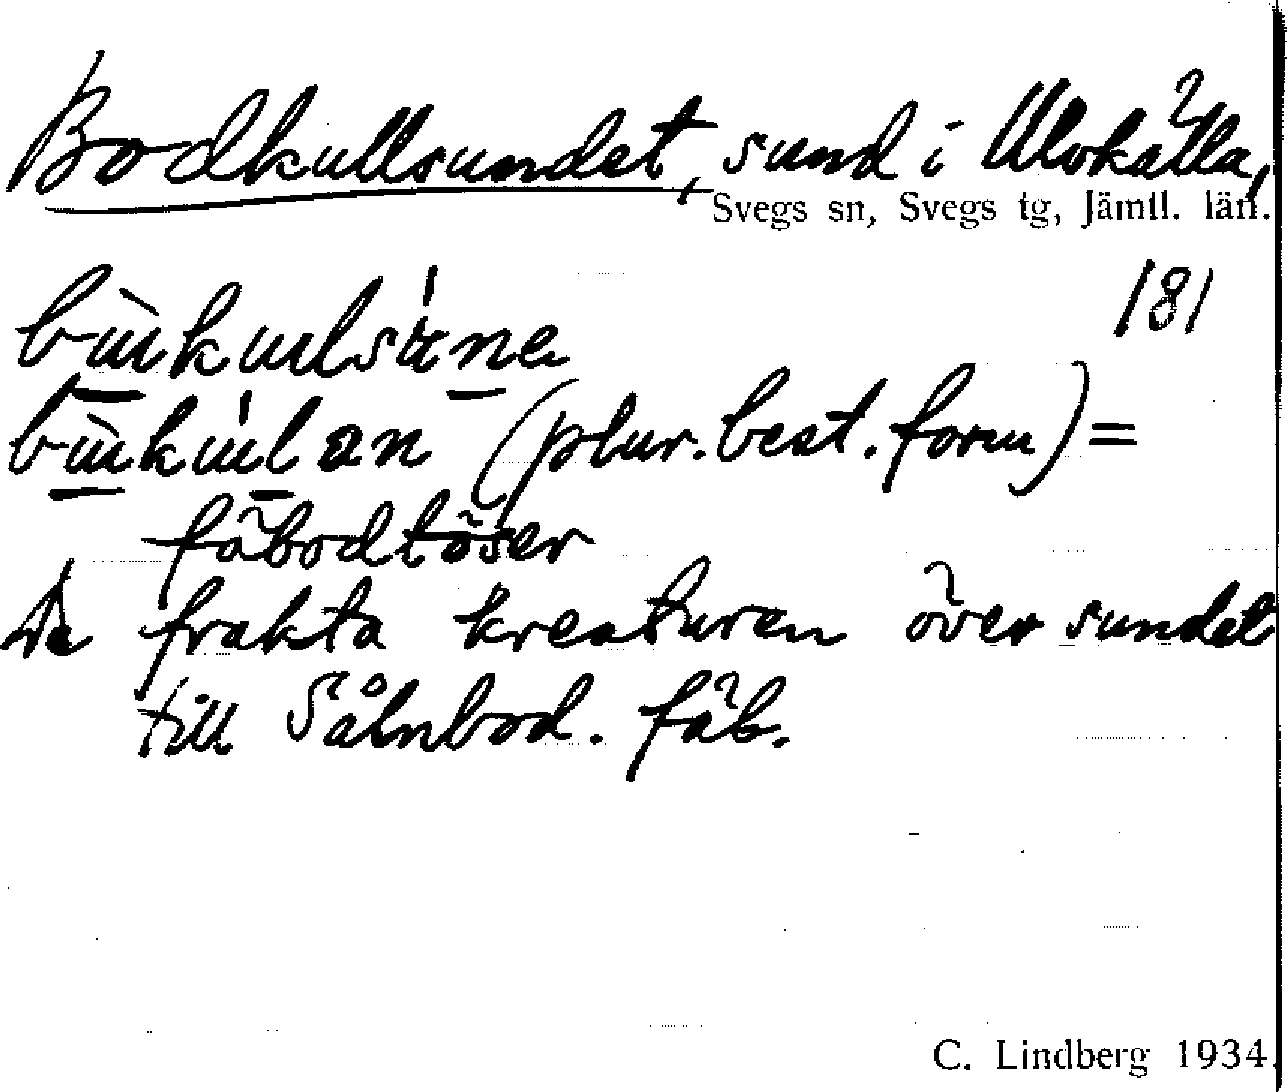 Bodkullsundet, sund i Ulvkälla,
Svegs sn, Svegs tg, Jämtl. län.
181
(plur. best. form) =
fäbodtöser
De frakta kreaturen över sundet
till Sålnbod. fäb.
C. Lindberg 1934.